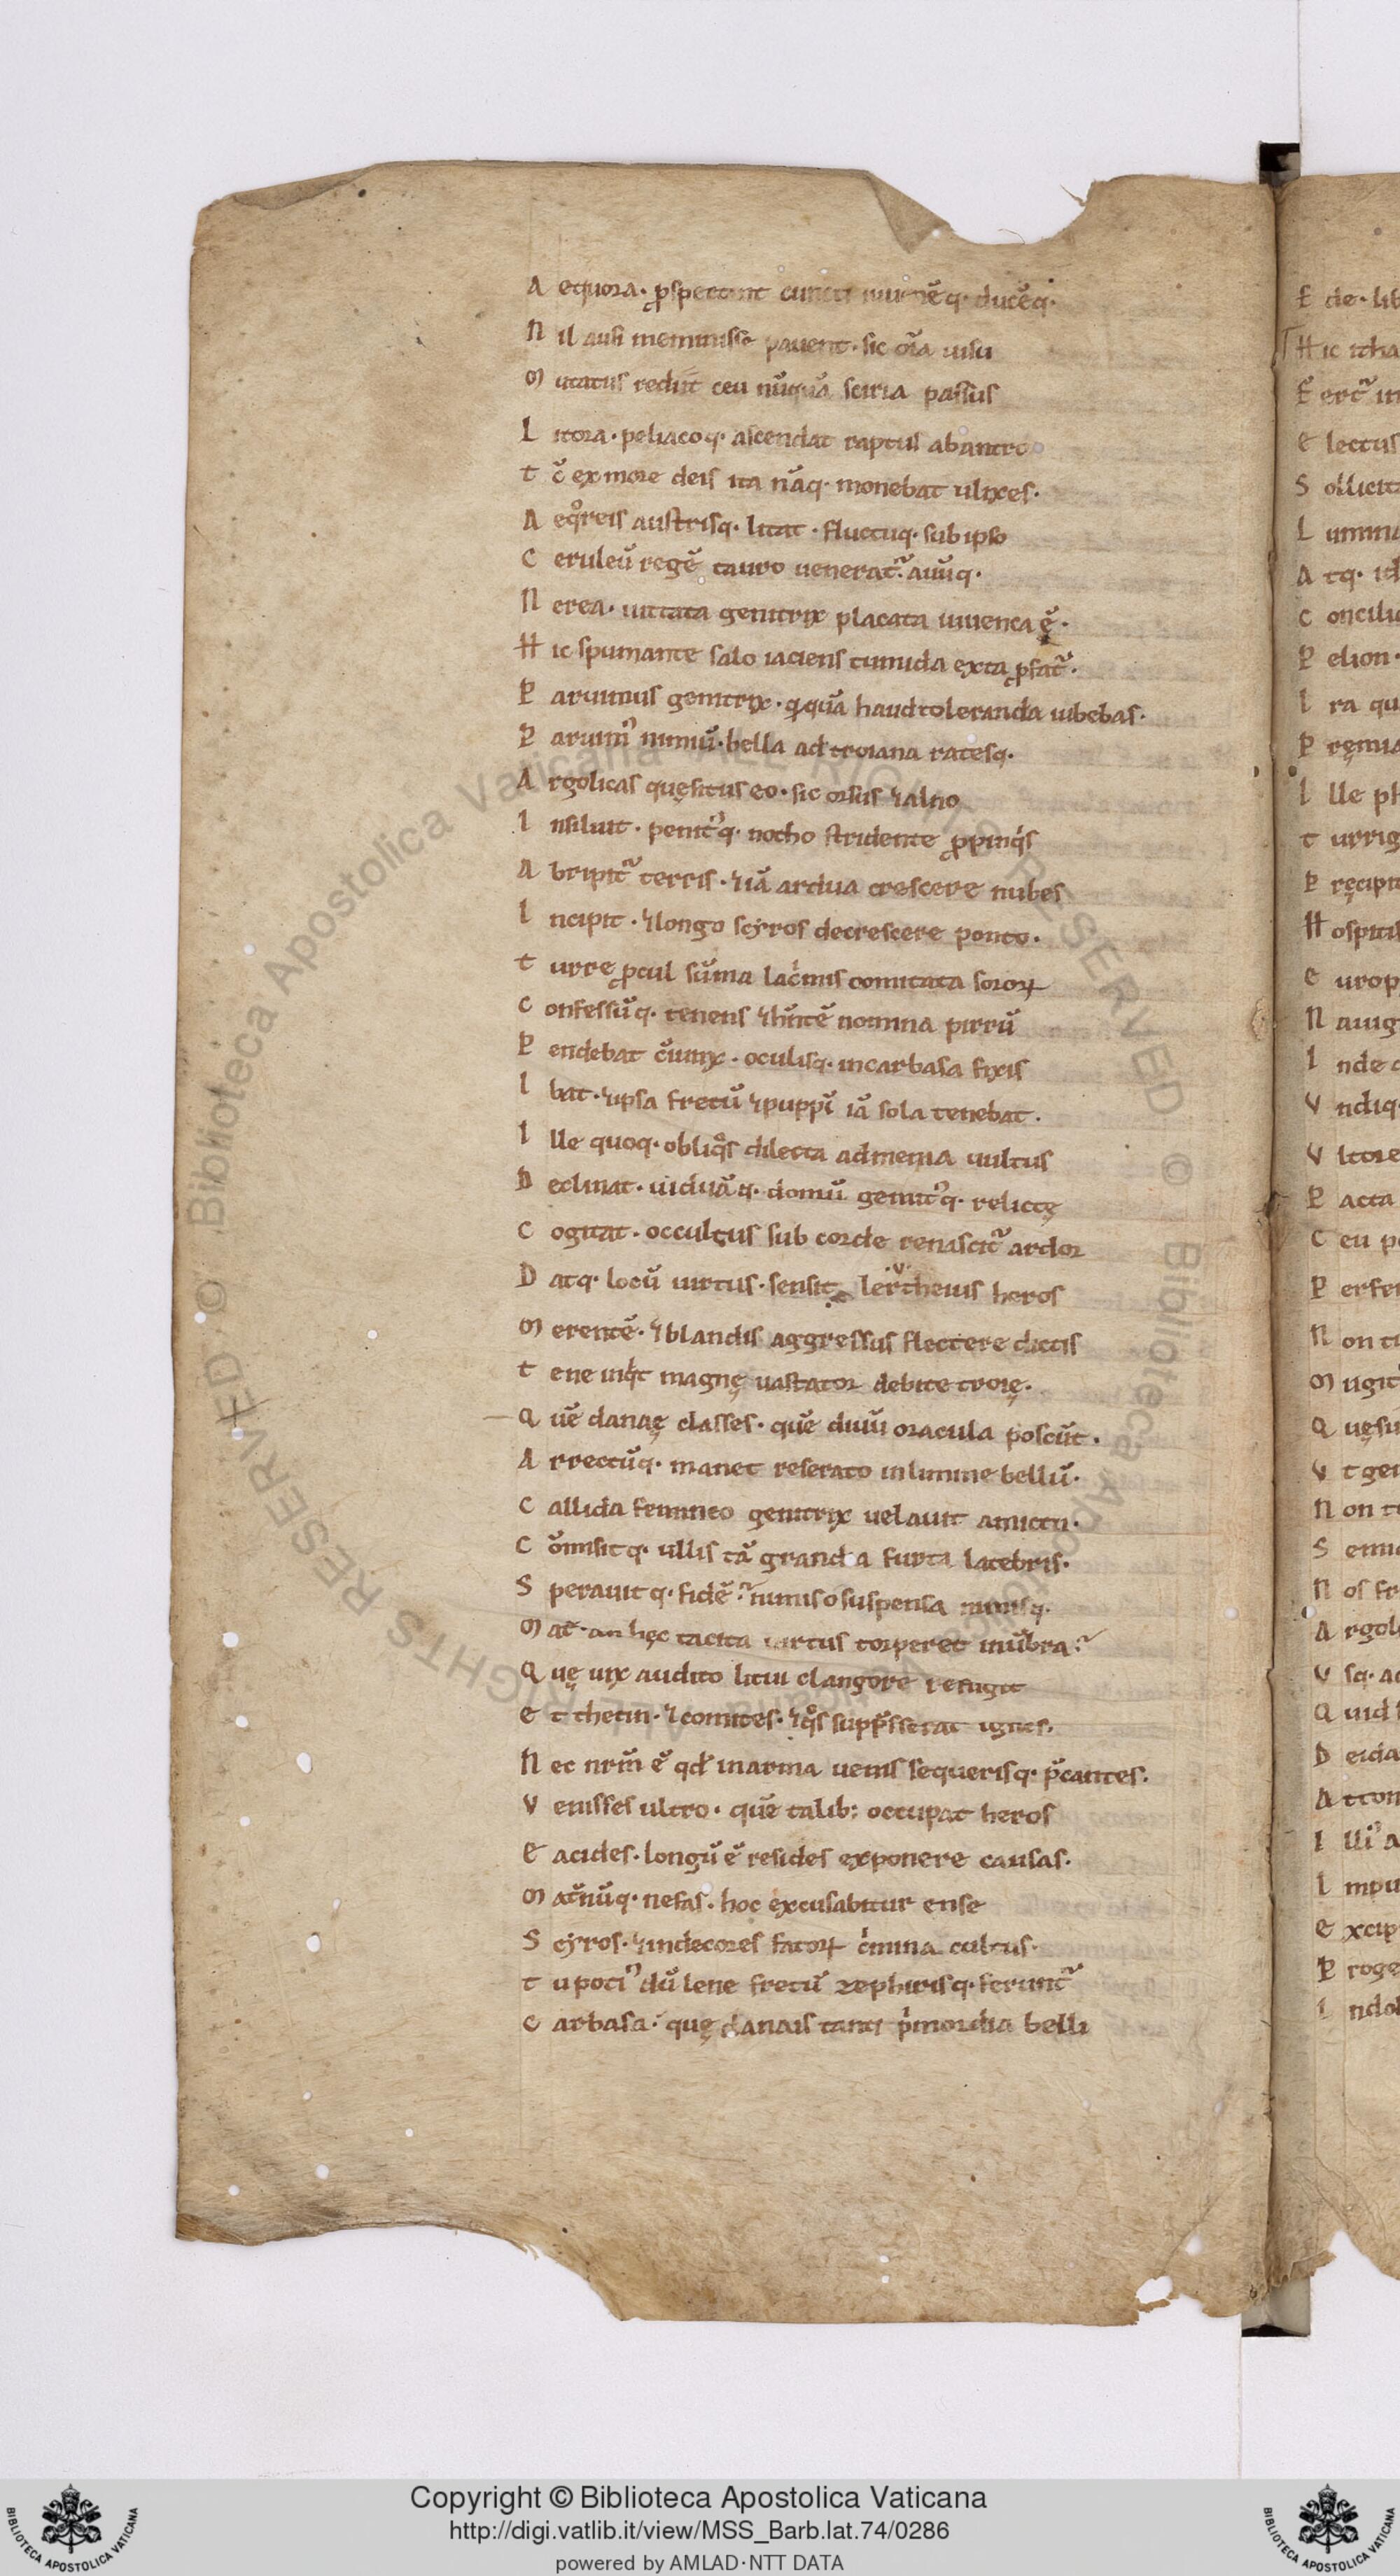 A equora· ꝓspectant cuncti iuuenēq· ducēq·
N il ausi meminisse pauent· sic om̄a uisu
M utatus rediit ceu nūquā sciria passus
L itora· peliacoq· ascendat raptus ab antro
t c̄ ex more deis ita nāq· monebat ulixes·
A eqͦreis austrisq· litat· fluctuq· sub ipso
C eruleū regē tauro uenerat᷑· auūq·
N erea· uittata genitrix placata iuuenca ē·
H ic spumante salo iaciens tumida exta ꝓfat᷑·
P aruimus genitrix· qͣquā haud toleranda iubebas·
P aruimꝰ nimiū· bella ad troiana ratesq·
A rgolicas quęsitus eo· sic orsus ⁊alno
I nsiluit· penitꝰq· notho stridente ꝓpinqͥs
A bripit᷑ terris· ⁊iā ardua crescere nubes
I ncipit· ⁊longo scyros decrescere ponto·
t urre ꝓcul sūma lacͥmis comitata sororꝝ
C onfessūq· tenens ⁊hn̄tē nomina pirrū
P endebat c̄iunx· oculisq· in carbasa fixis
I bat· ⁊ipsa fretū ⁊puppī iā sola tenebat·
I lle quoq· obliqͦs dilecta ad menia uultus
D eclinat· uiduāq· domū gemitꝰq· relictę
C ogitat· occultus sub corde renascit᷑ ardor
D atq· locū uirtus· sensit lertheius heros
M erentē· ⁊blandis aggressus flectere dictis
t ene inqͥt magnę uastator debite troię·
Q uē danaę classes· quē diuū oracula poscūt·
A rrectūq· manet reserato in limine bellū·
C allida femineo genitrix uelauit amictu·
C ōmisitq· ullis tā grandia furta latebris·
S perauitq· fidē· nimis o suspensa nimisq·
M at̄· an hęc tacita uirtus torperet in ūbra·
Q uę uix audito litui clangore refugit
e t thetin· ⁊comites· ⁊qͦs supp̄sserat ignes·
N ec nr̄m ē qd̄ in arma uenis sequerisq· p̄cantes·
V enisses ultro· quē talib; occupat heros
E acides· longū ē resides exponere causas·
M at̄nūq· nefas· hoc excusabitur ense
S cyros· ⁊indecores fatorꝝ cͥmina cultus·
t u potiꝰ dū lene fretū zephirisq· feruntᷣ
C arbasa· quę danais tanti pͥmordia belli
Copyright © Biblioteca Apostolica Vaticana
http://digi.vatlib.it/view/MSS_Barb.lat.74/0286
powered by AMLAD·NTT DATA